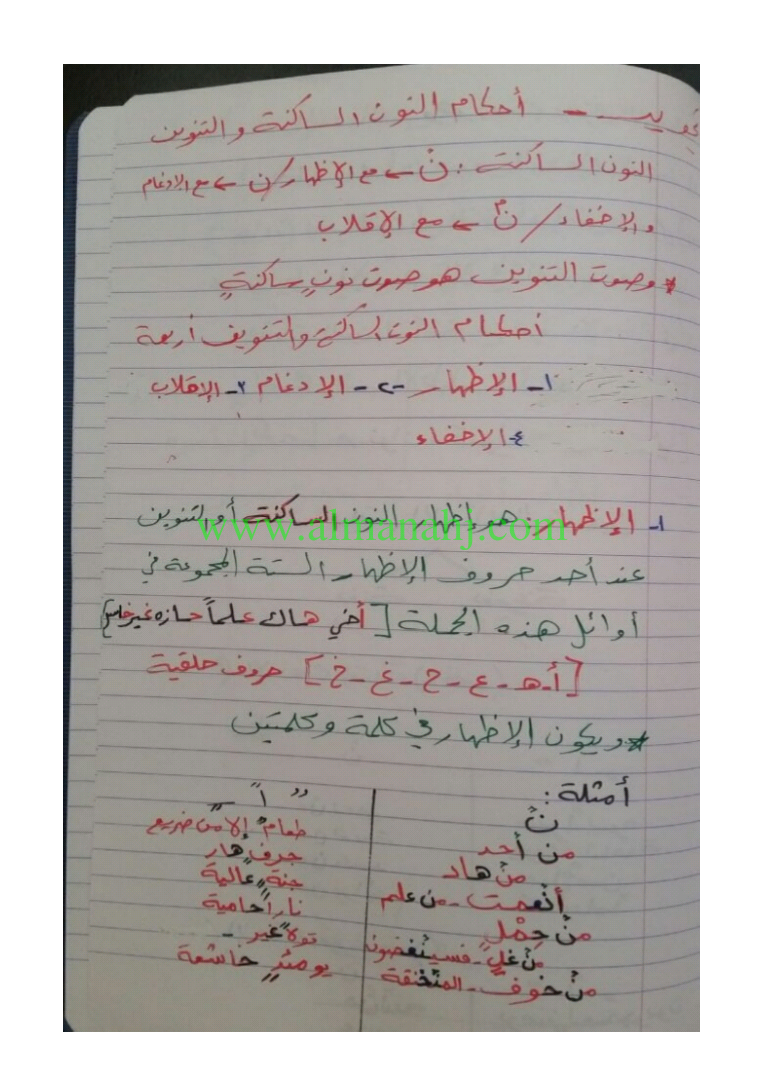 تجويد - أحكام النون الساكنة والتنوين
النون الساكنة : نْ ← مع الإظهار / ن ← مع الإدغام
والإخفاء / نۢ ← مع الإقلاب
* وصوت التنوين هو صوت نونٍ ساكنةٍ
أحكام النون الساكنة والتنوين أربعة
١- الإظهار ٢- الإدغام ٣- الإقلاب
٤- الإخفاء
١- الإظهار: هو إظهار النون الساكنة أو التنوين
www.almanahj.com
عند أحد حروف الإظهار الستة المجموعة في
أوائل هذه الجملة [أخي هاك علماً حازه غير خاسر]
[أ - هـ - ع - ح - غ - خ] حروف حلقية
* ويكون الإظهار في كلمة وكلمتين
أمثلة :
نْ
من أحد
منْ هاد
أنْعمت - منْ علم
منْ حِمْلِ
منْ غلٍ - فسينْغضون
منْ خوف - المنْخنقة
ـٌ اً ـٍ
طعامٌ إلا من ضريع
جرفٍ هار
جنةٍ عالية
ناراً حامية
غير -
يومئذٍ خاشعة